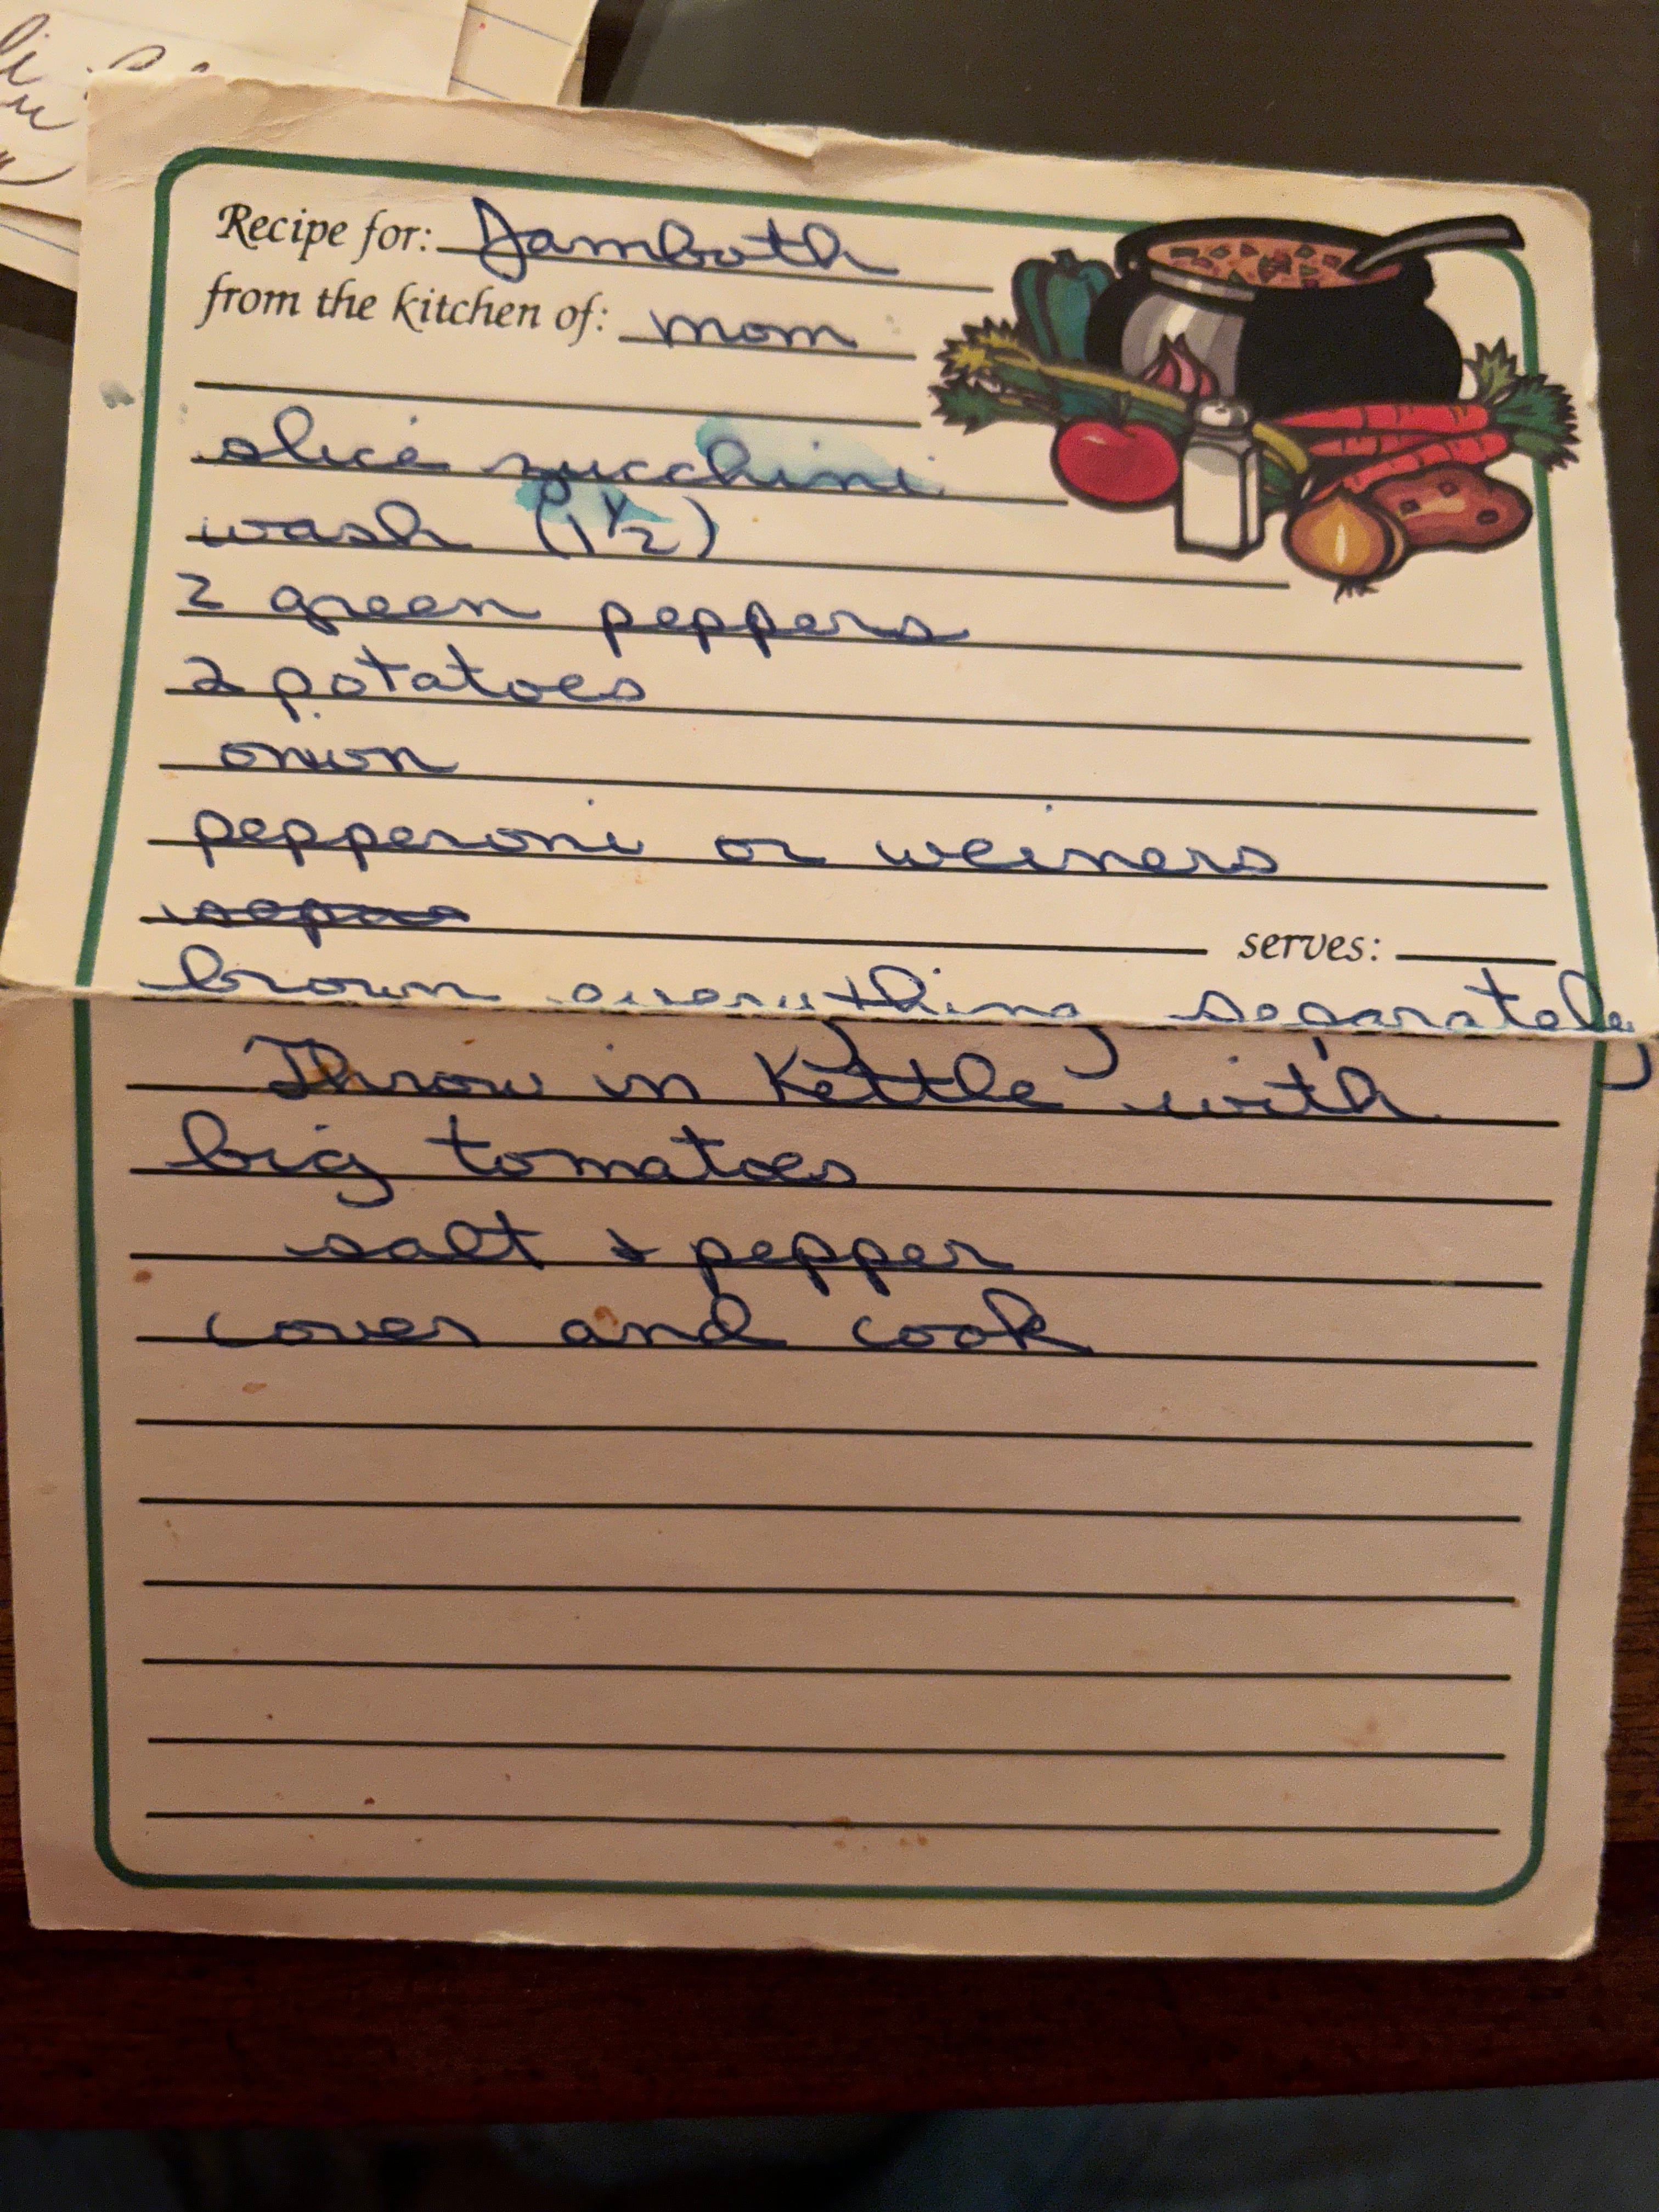 Recipe for: Jamboth
from the kitchen of: mom
slice zucchini
wash (1 1/2)
2 green peppers
2 potatoes
onion
pepperoni or weiners
serves:
brown everything separately
Throw in Kettle with
big tomatoes
salt & pepper
cover and cook